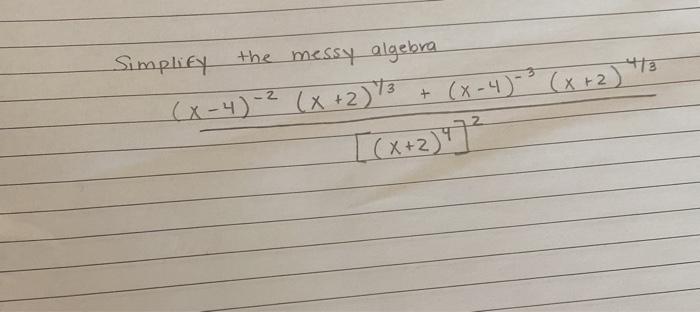 Simplify the messy algebra
(x-4)^-2 (x+2)^1/3 + (x-4)^-3 (x+2)^4/3
[(x+2)^4]^2